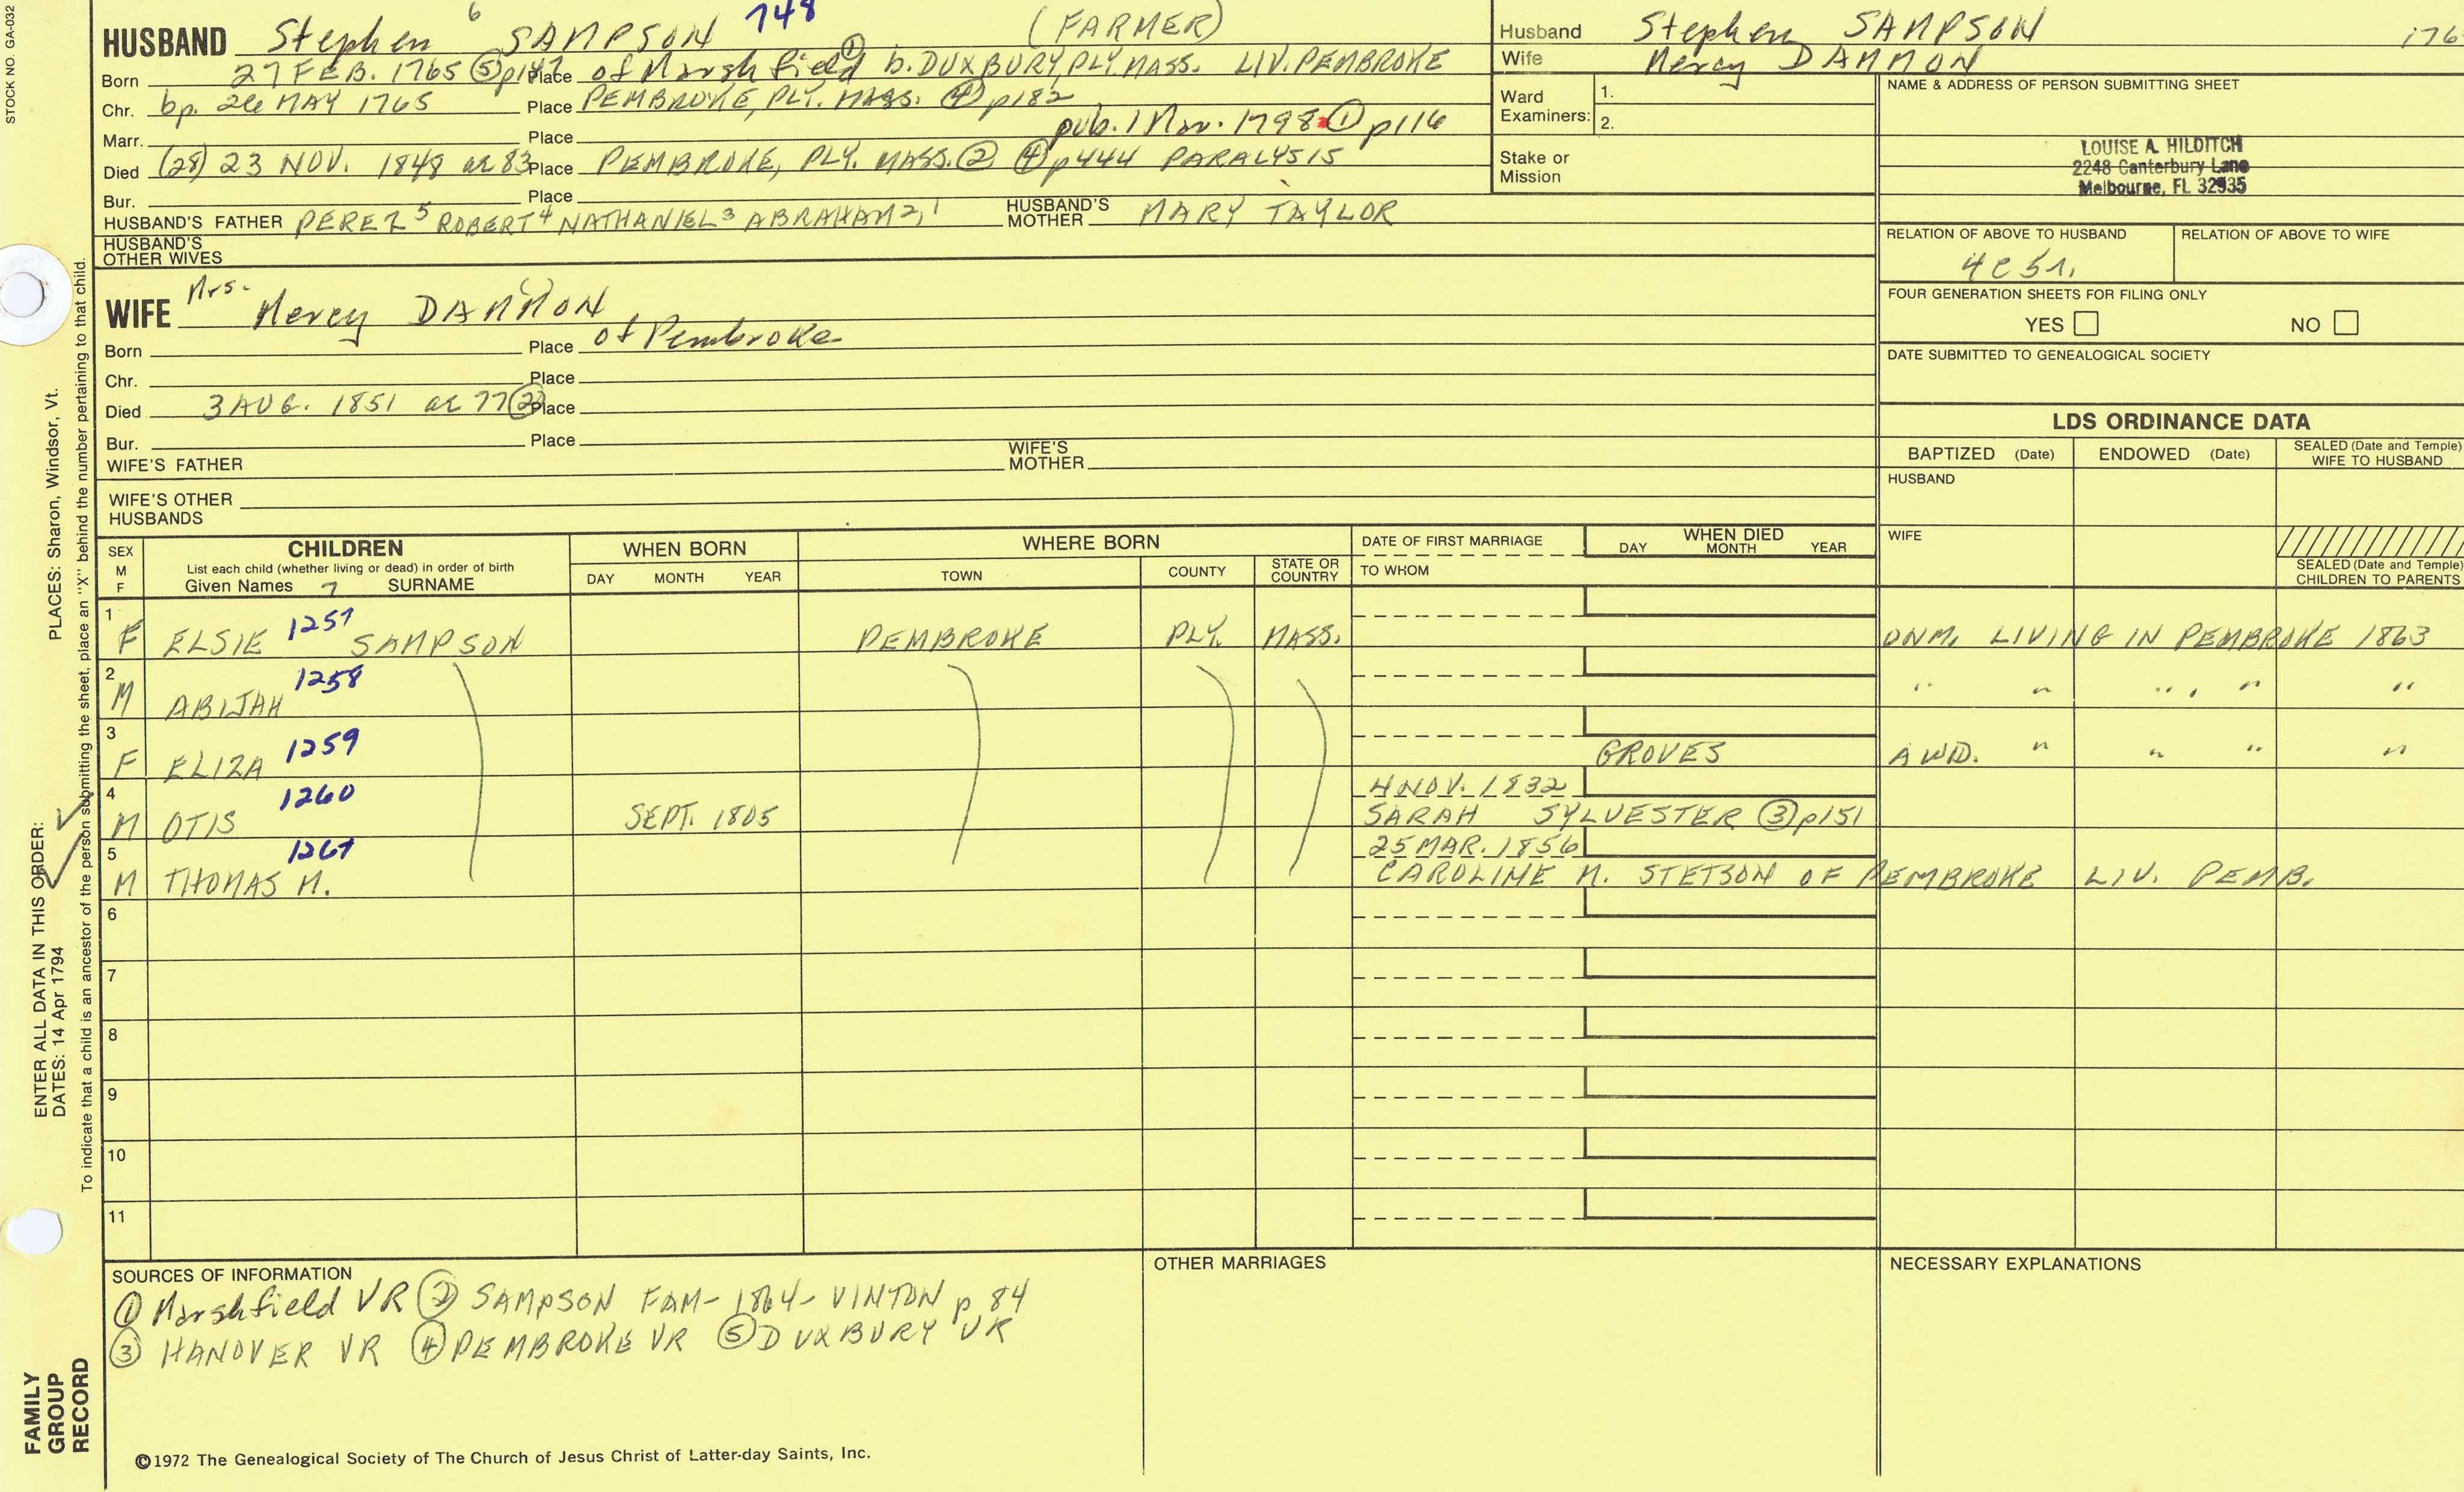 STOCK NO. GA-032
HUSBAND Stephen 6 SAMPSON 748 (FARMER)
Born 27 FEB. 1765 ⑤ p147 Place of Marshfield ① b. DUXBURY, PLY. MASS. LIV. PEMBROKE
Chr. bp. 26 MAY 1765 Place PEMBROKE, PLY. MASS. ④ p182
Marr. Place pub. 1 Mar. 1798 ① p116
Died (28) 23 NOV. 1848 ae 83 Place PEMBROKE, PLY. MASS. ② ④ p444 PARALYSIS
Bur. Place
HUSBAND'S FATHER PEREZ 5 ROBERT 4 NATHANIEL 3 ABRAHAM 2, 1 HUSBAND'S MOTHER MARY TAYLOR
HUSBAND'S OTHER WIVES
Husband Stephen SAMPSON 176
Wife Mercy DAMMON
Ward Examiners: 1.
2.
Stake or Mission
NAME & ADDRESS OF PERSON SUBMITTING SHEET
LOUISE A. HILDITCH
2248 Canterbury Lane
Melbourne, FL 32935
RELATION OF ABOVE TO HUSBAND RELATION OF ABOVE TO WIFE
4C5r.
FOUR GENERATION SHEETS FOR FILING ONLY
YES NO
DATE SUBMITTED TO GENEALOGICAL SOCIETY
WIFE Mrs. Mercy ( ) DAMMON
Born Place of Pembroke
Chr. Place
Died 3 AUG. 1851 ae 77 ② Place
Bur. Place
WIFE'S FATHER WIFE'S MOTHER
WIFE'S OTHER HUSBANDS
LDS ORDINANCE DATA
BAPTIZED (Date) ENDOWED (Date) SEALED (Date and Temple) WIFE TO HUSBAND
HUSBAND
WIFE
SEALED (Date and Temple) CHILDREN TO PARENTS
SEX M F CHILDREN WHEN BORN WHERE BORN DATE OF FIRST MARRIAGE WHEN DIED
List each child (whether living or dead) in order of birth
Given Names 7 SURNAME DAY MONTH YEAR TOWN COUNTY STATE OR COUNTRY TO WHOM DAY MONTH YEAR
1 F ELSIE 1257 SAMPSON PEMBROKE PLY. MASS. DNM. LIVING IN PEMBROKE 1863
2 M ABIJAH 1258 " " " , " "
3 F ELIZA 1259 GROVES A WD. " " " "
4 M OTIS 1260 SEPT. 1805 4 NOV. 1832
SARAH SYLVESTER ③ p151
5 M THOMAS M. 1261 25 MAR. 1856
CAROLINE M. STETSON OF PEMBROKE LIV. PEMB.
6
7
8
9
10
11
SOURCES OF INFORMATION
① Marshfield VR ② SAMPSON FAM- 1864- VINTON p 84
③ HANOVER VR ④ PEMBROKE VR ⑤ DUXBURY VR
OTHER MARRIAGES
NECESSARY EXPLANATIONS
©1972 The Genealogical Society of The Church of Jesus Christ of Latter-day Saints, Inc.
FAMILY GROUP RECORD
ENTER ALL DATA IN THIS ORDER:
DATES: 14 Apr 1794
PLACES: Sharon, Windsor, Vt.
To indicate that a child is an ancestor of the person submitting the sheet, place an "X" behind the number pertaining to that child.